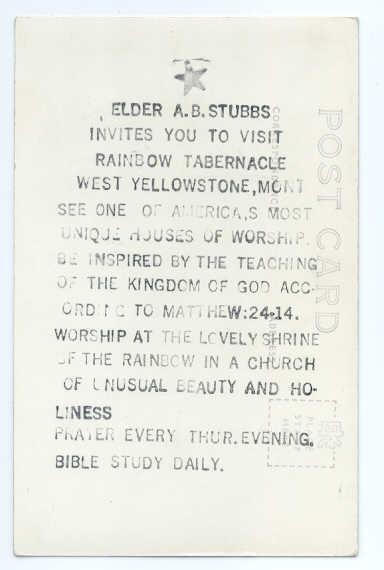 ELDER A.B. STUBBS
INVITES YOU TO VISIT
RAINBOW TABERNACLE
WEST YELLOWSTONE, MONT
SEE ONE OF AMERICA,S MOST
UNIQUE HOUSES OF WORSHIP.
BE INSPIRED BY THE TEACHING
OF THE KINGDOM OF GOD ACC-
ORDING TO MATTHEW:24-14.
WORSHIP AT THE LOVELY SHRINE
OF THE RAINBOW IN A CHURCH
OF UNUSUAL BEAUTY AND HO-
LINESS
PRAYER EVERY THUR. EVENING.
BIBLE STUDY DAILY.
POST CARD
CORRESPONDENCE
ADDRESS
PLACE
STAMP
HERE